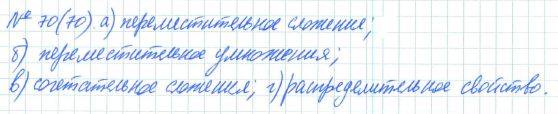 № 70(70) а) переместительное сложение;
б) переместительное умножения;
в) сочетательное сложения; г) распределительное свойство.